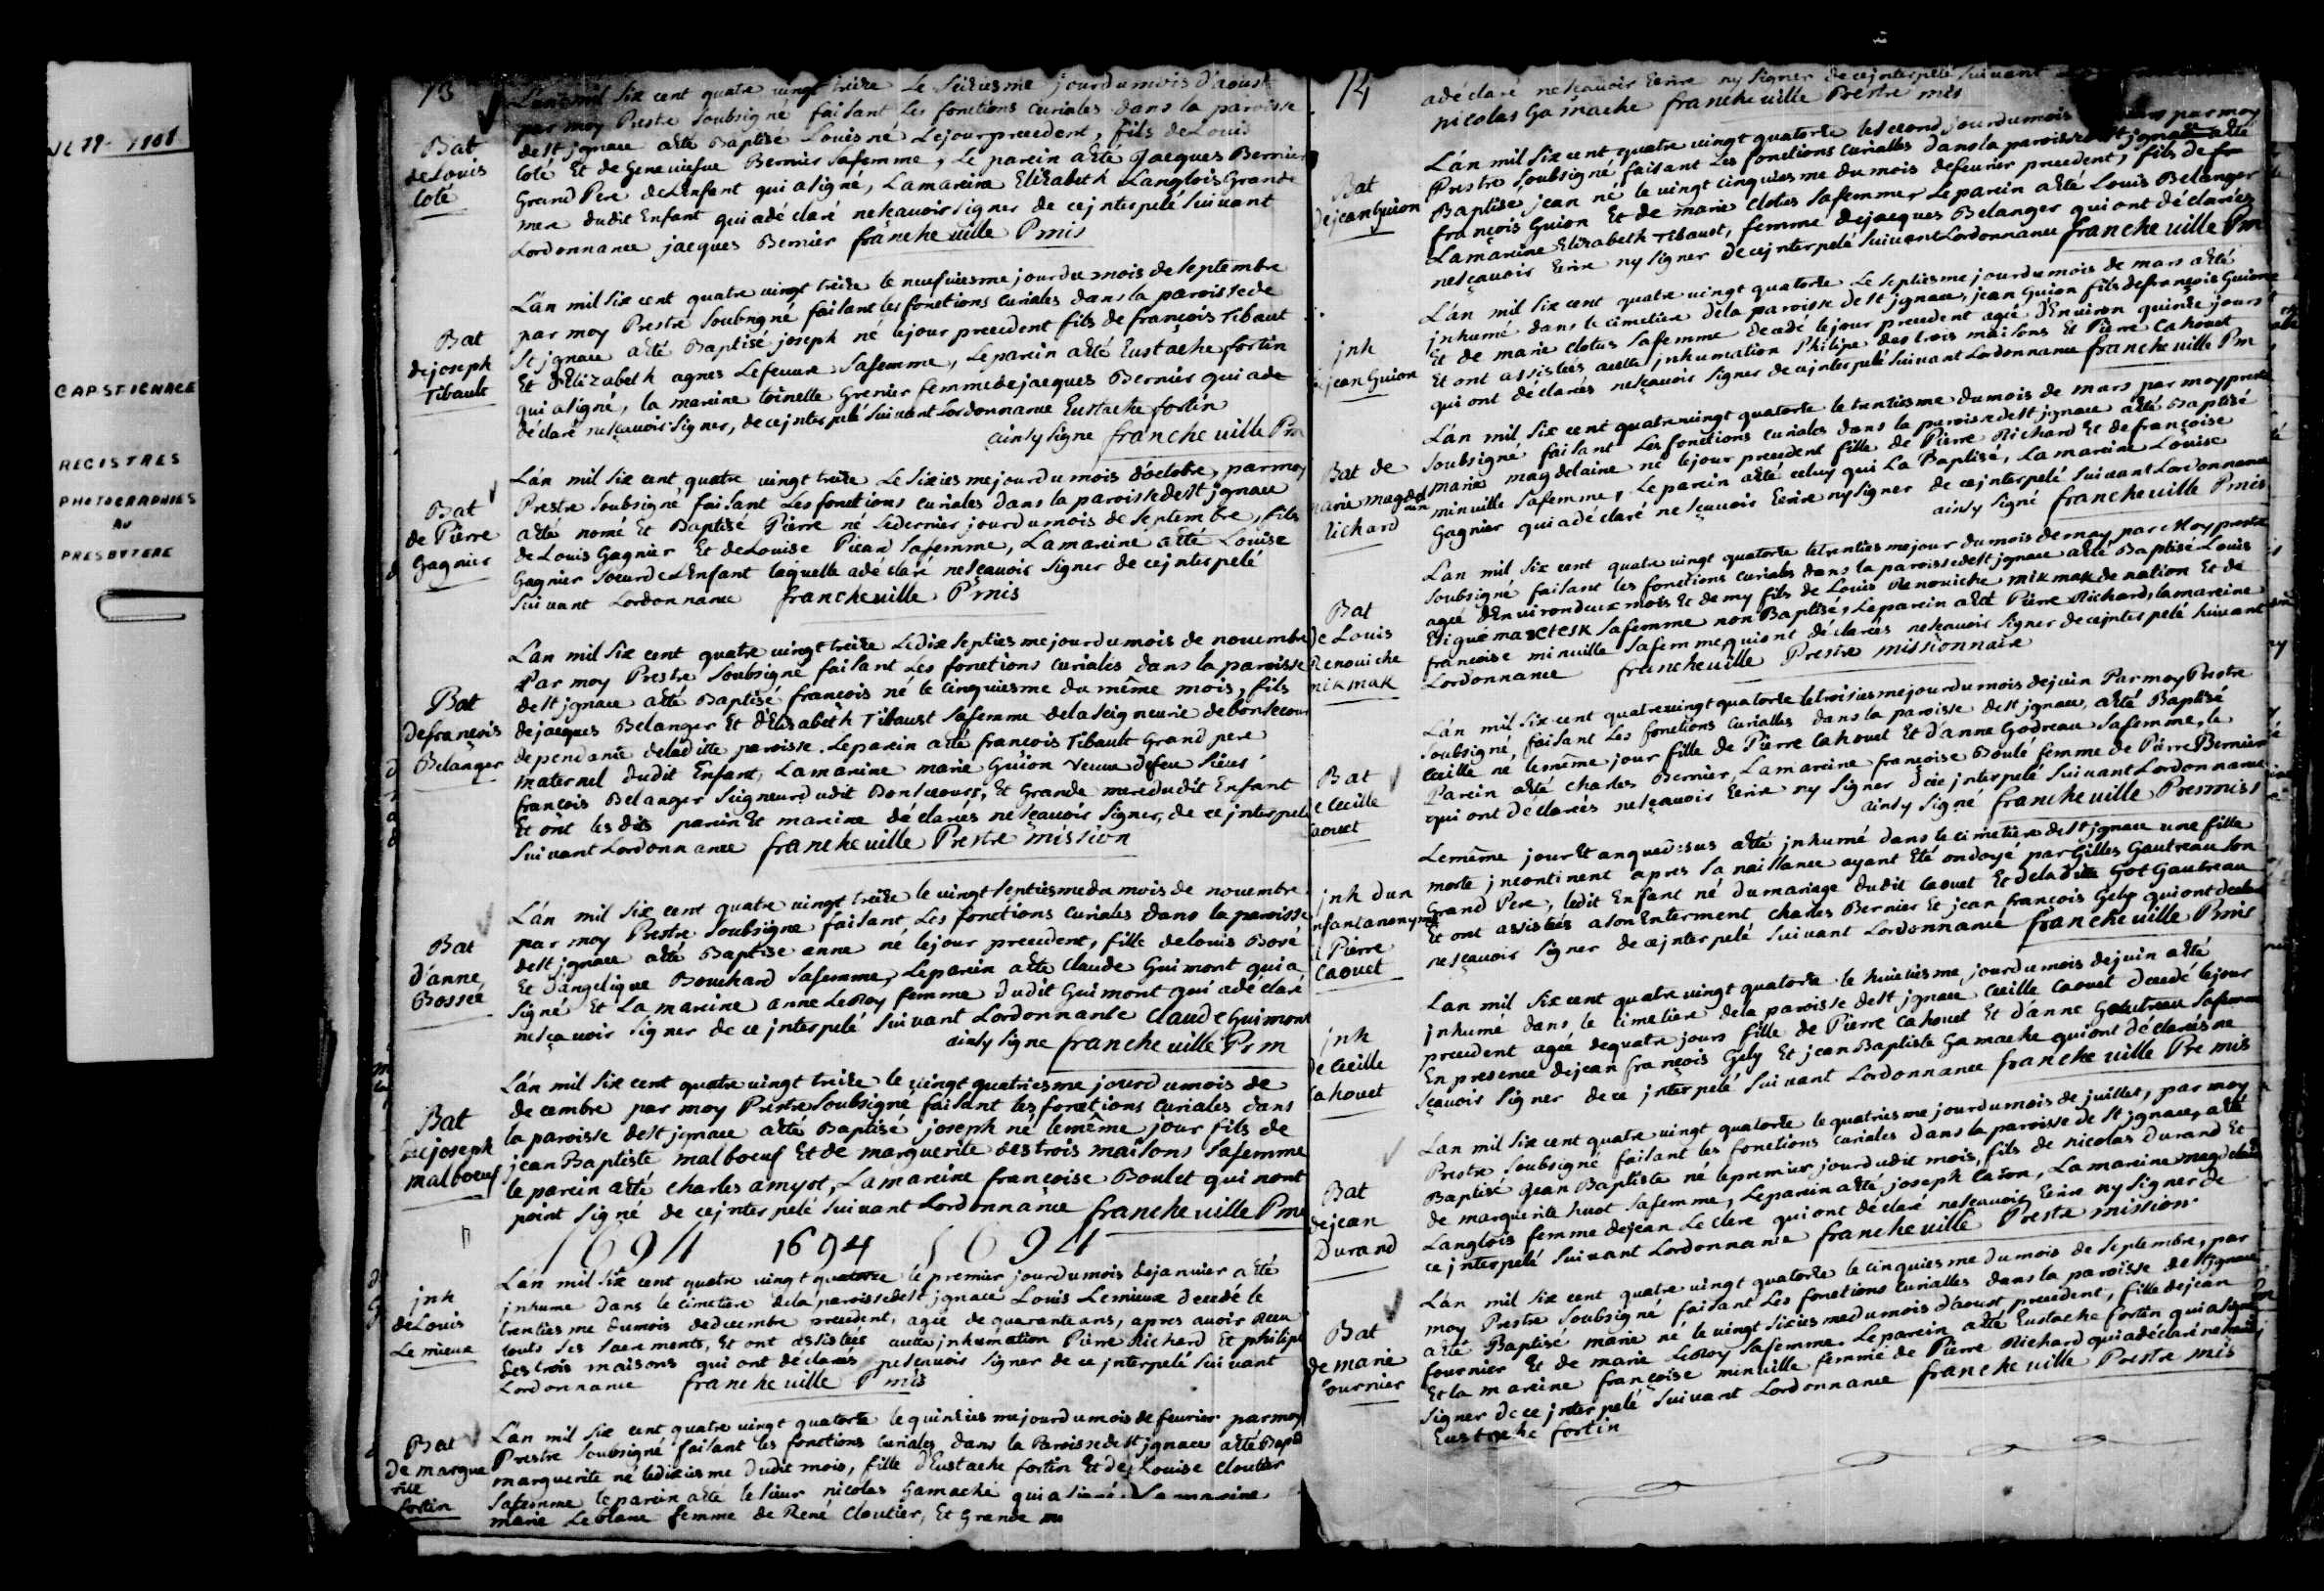 JL 79- 1108
CAP ST IGNACE
REGISTRES
PHOTOGRAPHIES
AU
PRESBYTERE
13
Bat
de Louis
Coté
L'an mil six cent quatre vingt treize Le seiziesme jour du mois d'aoust
par moy Prestre soubsigné faisant Les fonctions curiales dans la paroisse
de st jgnace a été Baptisé Louis né Le jour precedent, fils de Louis
Coté Et de Geneviesve Bernier sa femme, Le parein a été Jacques Bernier
Grand Pere de L'Enfant qui a signé, La mareine Elizabeth Langlois Grande
mere dudit Enfant qui a déclaré ne scavoir signer de ce jnterpelé suivant
Lordonnance jacques Bernier francheville Pmis
Bat
de joseph
Tibault
L'an mil six cent quatre vingt treize le neufviesme jour du mois de septembre
par moy Prestre soubsigné faisant les fonctions curiales dans la paroisse de
st jgnace a été Baptisé joseph né le jour precedent fils de françois Tibaut
Et d'Elizabeth agnes Lefeuvre sa femme, Le parein a été Eustache fortin
qui a signé, la mareine toinette Grenier femme de jacques Bernier qui a de
déclaré ne sçavoir signer, de ce jnterpelé suivant Lordonnance Eustache fortin
ainsy signe francheville Pm
Bat
de Pierre
Gagnier
L'an mil six cent quatre vingt treize Le sixiesme jour du mois d'octobre, par moy
Prestre soubsigné faisant Les fonctions curiales dans la paroisse de st jgnace
a été nomé Et Baptisé Pierre né Le dernier jour du mois de septembre, fils
de Louis Gagnier Et de Louise Picard sa femme, La mareine a été Louise
Gagnier soeur de L'Enfant laquelle a déclaré ne scavoir signer de ce jnterpelé
suivant Lordonnance francheville Pmis
Bat
de françois
Belanger
L'an mil six cent quatre vingt treize Le dix septiesme jour du mois de novembre
Par moy Prestre soubsigné faisant Les fonctions curiales dans la paroisse
de st jgnace a été Baptisé françois né le cinquiesme du même mois, fils
de jacques Belanger Et d'Elizabeth Tibaust sa femme de la seigneurie de bonsecour
dependante de la ditte paroisse. Le parein a été françois Tibault Grand pere
maternel dudit Enfant, La mareine marie Guion veuve de feu sieur
françois Belanger seigneur dudit Bonsecours, Et Grande mere dudit Enfant
Et ont les dits parein Et mareine déclarés ne sçavoir signer, de ce jnterpelé
suivant Lordonnance francheville Prestre mission
Bat
d'anne
Bossée
L'an mil six cent quatre vingt treize le vingt septiesme du mois de novembre
par moy Prestre soubsigne faisant Les fonctions curiales dans la paroisse
de st jgnace a été Baptise anne né le jour precedent, fille de Louis Bosé
Et d'angelique Bouchard sa femme, Le parein a été Claude Guimont qui a
signé Et La mareine anne LeRoy femme dudit Guimont qui a déclaré
ne sçavoir signer de ce jnterpelé suivant Lordonnance Claude Guimont
ainsy signe francheville Prm
Bat
de joseph
malboeuf
L'an mil six cent quatre vingt treize le vingt quatriesme jour du mois de
decembre par moy Prestre soubsigné faisant les fonctions curiales dans
la paroisse de st jgnace a été Baptisé joseph né le même jour fils de
jean Baptiste malboeuf Et de marguerite des trois maisons sa femme
le parein a été Charles amyot, La mareine françoise Boulet qui n'ont
point signé de ce jnterpelé suivant Lordonnance francheville Pm
1694 1694 1694
jnh
de Louis
Le mieux
L'an mil six cent quatre vingt quatorze le premier jour du mois de janvier a été
jnhumé dans le cimetiere de la paroisse de st jgnace Louis Lemieux decedé le
trentiesme du mois de decembre precedent, agée de quarante ans, apres avoir Receu
touts ses sacrements, Et ont assistées a cette jnhumation Pierre Richard Et philipe
des trois maisons qui ont déclarés ne scavoir signer de ce jnterpelé suivant
Lordonnance francheville Pmis
Bat
de margue
rite
fortin
L'an mil six cent quatre vingt quatorze le quinziesme jour du mois de fevrier par moy
Prestre soubsigné faisant les fonctions curiales dans la Paroisse de st jgnace a été Bapt
marguerite né le dixiesme dudit mois, fille d'Eustache fortin Et de Louise Cloutier
sa femme le parein a été le sieur nicolas Gamache qui a signé. La mareine
marie Leblanc femme de René Cloutier, Et Grande
14
a déclaré ne scavoir Ecrire ny signer de ce jnterpelé suivant
nicolas Gamache francheville Prestre mis
Bat
de jean Guion
L'an mil six cent quatre vingt quatorze le second jour du mois par moy
Prestre soubsigné faisant Les fonctions curialles dans la paroisse de st jgnace a été
Baptisé jean né le vingt cinquiesme du mois de fevrier precedent, fils de
françois Guion Et de marie Clotus sa femme Le parein a été Louis Belanger
La mareine Elizabeth Tibaust, femme de jacques Belanger qui ont déclarées
ne sçavoir Ecrire ny signer de ce jnterpelé suivant Lordonnance francheville Pm
jnh
de jean Guion
L'an mil six cent quatre vingt quatorze Le septiesme jour du mois de mars a été
jnhumé dans le cimetiere de la paroisse de st jgnace, jean Guion fils de françois Guion
Et de marie Clotus sa femme decedé le jour precedent agée d'Environ quinze jours
Et ont assistées a cette jnhumation Philipe des trois maisons Et Pierre Cahouet
qui ont déclarés ne sçavoir signer de ce jnterpelé suivant Lordonnance francheville Pm
Bat de
marie magdel
ain
Richard
L'an mil six cent quatre vingt quatorze le trentiesme du mois de mars par moy prestre
soubsigné faisant Les fonctions curiales dans la paroisse de st jgnace a été Baptisé
marie magdelaine né le jour precedent fille de Pierre Richard Et de françoise
minville sa femme, Le parein a été celuy qui La Baptisé, La mareine Louise
Gagnier qui a déclaré ne sçavoir Ecrire ny signer de ce jnterpelé suivant Lordonnance
ainsy signé francheville Pmis
Bat
de Louis
Renouiche
mikmak
L'an mil six cent quatre vingt quatorze le trentiesme jour du mois de may par Moy prestre
soubsigné faisant les fonctions curiales dans la paroisse de st jgnace a été Baptisé Louis
agée d'Environ deux mois Et demy fils de Louis Renouiche mikmak de nation Et de
sa femme non Baptisé, Le parein a été Pierre Richard, la mareine
francoise minville sa femme qui ont déclarés ne scavoir signer de ce jnterpelé suivant
Lordonnance francheville Prestre missionnaire
Bat
de Cecille
Caouet
L'an mil six cent quatre vingt quatorze le troisiesme jour du mois de juin Par moy Prestre
soubsigné, faisant Les fonctions curialles dans la paroisse de st jgnace, a été Baptisé
Cecille né le même jour fille de Pierre Cahouet Et d'anne Godreau sa femme, le
Parein a été Charles Bernier, La mareine françoise Boulé femme de Pierre Bernier
qui ont déclarés ne sçavoir Ecrire ny signer de ce jnterpelé suivant Lordonnance
ainsy signé francheville Presmiss
jnh dun
Enfant anonyme
de Pierre
Caouet
Le même jour Et an que dessus a été jnhumé dans le cimetiere de st jgnace une fille
morte jncontinent apres sa naissance ayant Eté ondoyé par Gilles Gautreau son
Grand Pere, ledit Enfant né du mariage dudit Caouet Et de la dite Got Gautreau
Et ont assistées a son Enterment Charles Bernier Et jean françois Gely qui ont declaré
ne sçavoir signer de ce jnterpelé suivant Lordonnance francheville Pmis
jnh
de Cecille
Cahouet
L'an mil six cent quatre vingt quatorze le huictiesme jour du mois de juin a été
jnhumé dans le cimetiere de la paroisse de st jgnace Cecille Caouet decedé le jour
precedent agée de quatre jours fille de Pierre Cahouet Et d'anne Gautreau sa femme
En presence de jean françois Gely Et jean Baptiste Gamache qui ont déclarés ne
sçavoir signer de ce jnterpelé suivant Lordonnance francheville Pre mis
Bat
de jean
Durand
L'an mil six cent quatre vingt quatorze le quatriesme jour du mois de juillet, par moy
Prestre soubsigné faisant les fonctions curiales dans la paroisse de st jgnace, a été
Baptisé Jean Baptiste né le premier jour dudit mois, fils de nicolas Durand Et
de marguerite huot sa femme, Le parein a été joseph Cason, La mareine
Langlois femme de jean Le Clerc qui ont déclaré ne scavoir Ecrire ny signer de
ce jnterpelé suivant Lordonnance francheville Prestre mission
Bat
de marie
fournier
L'an mil six cent quatre vingt quatorze le cinquiesme du mois de septembre, par
moy Prestre soubsigné faisant Les fonctions curialles dans la paroisse de st jgnace
a été Baptisé marie né le vingt sixiesme du mois d'aoust precedent, fille de jean
fournier Et de marie LeRoy sa femme. Le parein a été Eustache fortin qui a signé
Et la mareine françoise minville femme de Pierre Richard qui a déclaré ne scavoir
signer de ce jnterpelé suivant Lordonnance francheville Prestre mis
Eustache fortin